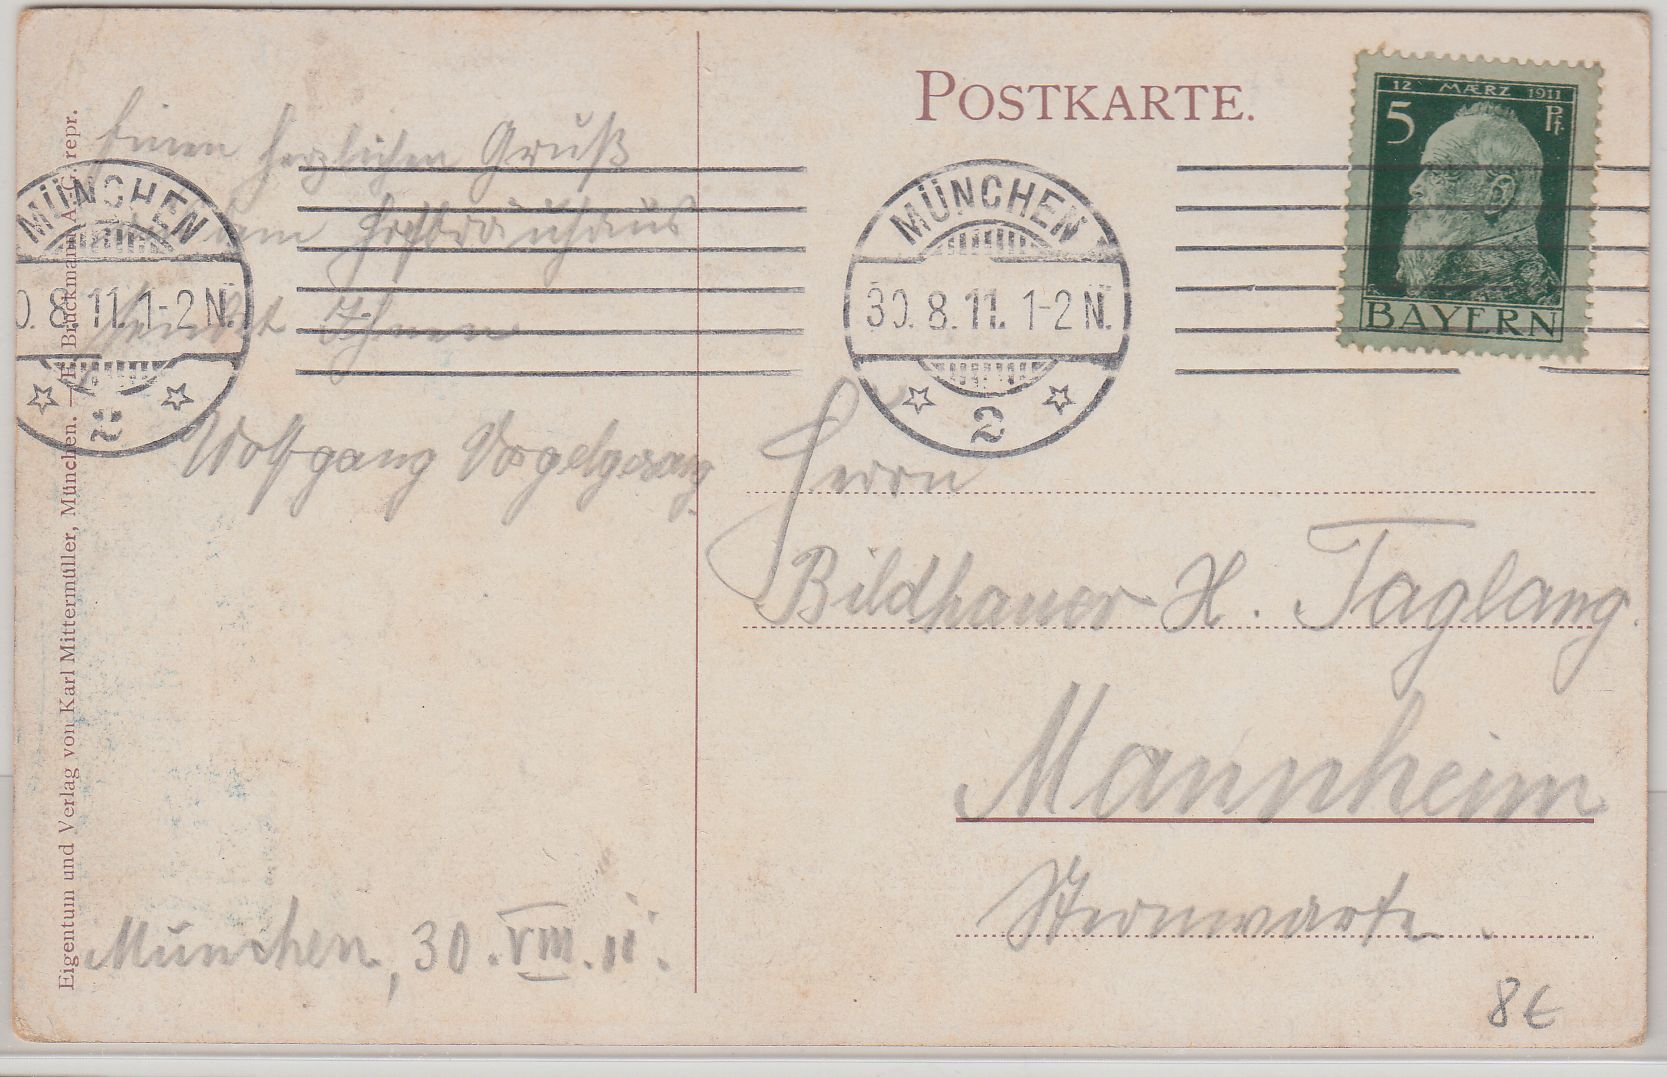 POSTKARTE.
12 MÆRZ 1911
5 Pf.
BAYERN
MÜNCHEN
30.8.11.1-2N.
2
MÜNCHEN
0.8.11.1-2N.
2
Einen herzlichen Gruß
vom Hofbräuhaus
sendet Ihnen
Wolfgang Vogelgesang.
München, 30.VIII.11.
Herrn
Bildhauer H. Taglang.
Mannheim
Sternwarte.
8€
Eigentum und Verlag von Karl Mittermüller, München. — F. Bruckmann A.-G. repr.